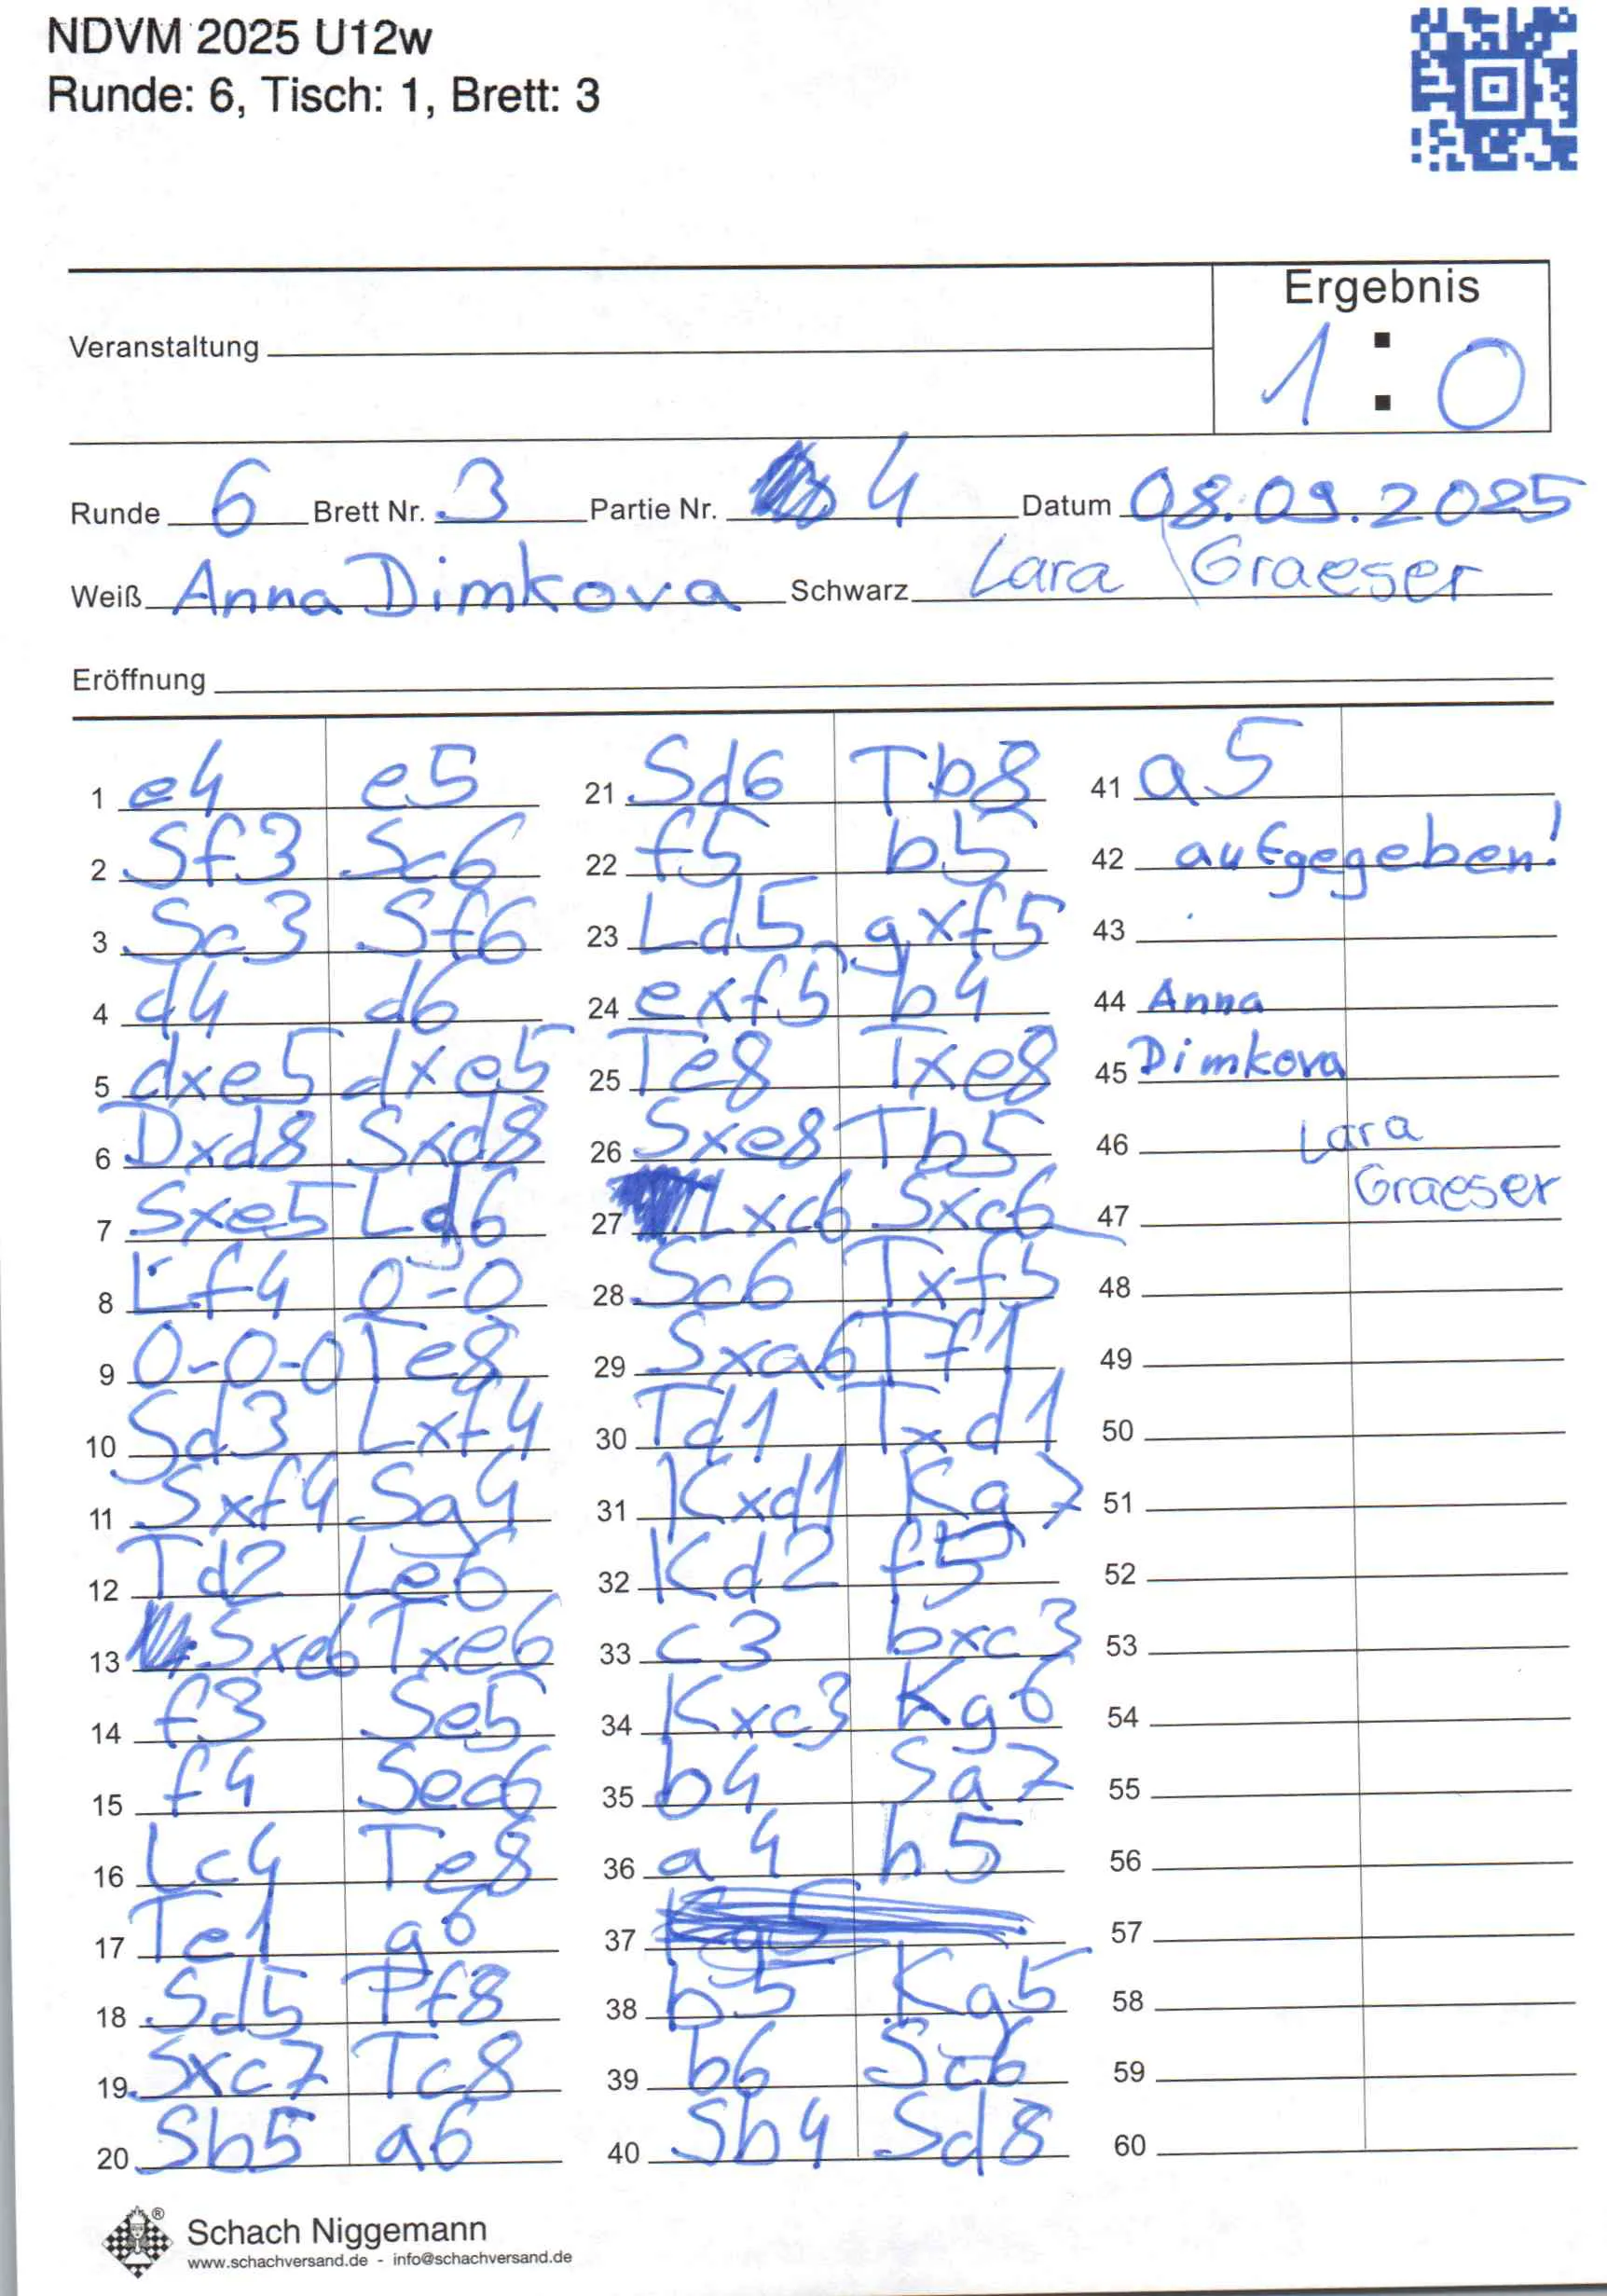 NDVM 2025 U12w
Runde: 6, Tisch: 1, Brett: 3
Ergebnis
Veranstaltung
1 : 0
Runde 6 Brett Nr. 3 Partie Nr. 4 Datum 08.09.2025
Weiß Anna Dimkova Schwarz Lara Graeser
Eröffnung
1 e4 e5
2 Sf3 Sc6
3 Sc3 Sf6
4 d4 d6
5 dxe5 dxe5
6 Dxd8 Sxd8
7 Sxe5 Ld6
8 Lf4 0-0
9 0-0-0 Te8
10 Sd3 Lxf4
11 Sxf4 Sg4
12 Td2 Le6
13 Sxe6 Txe6
14 f3 Se5
15 f4 Sec6
16 Lc4 Te8
17 Te1 g6
18 Sd5 Pf8
19 Sxc7 Tc8
20 Sb5 a6
21 Sd6 Tb8
22 f5 b5
23 Ld5 gxf5
24 exf5 b4
25 Te8 Txe8
26 Sxe8 Tb5
27 Lxc6 Sxc6
28 Sc6 Txf5
29 Sxa6 Tf1
30 Td1 Txd1
31 Kxd1 Kg7
32 Kd2 f5
33 c3 bxc3
34 Kxc3 Kg6
35 b4 Sa7
36 a4 h5
37
38 b5 Kg5
39 b6 Sc6
40 Sb4 Sd8
41 a5
42 aufgegeben!
43
44 Anna
45 Dimkova
46 Lara
Graeser
47
48
49
50
51
52
53
54
55
56
57
58
59
60
Schach Niggemann
www.schachversand.de - info@schachversand.de